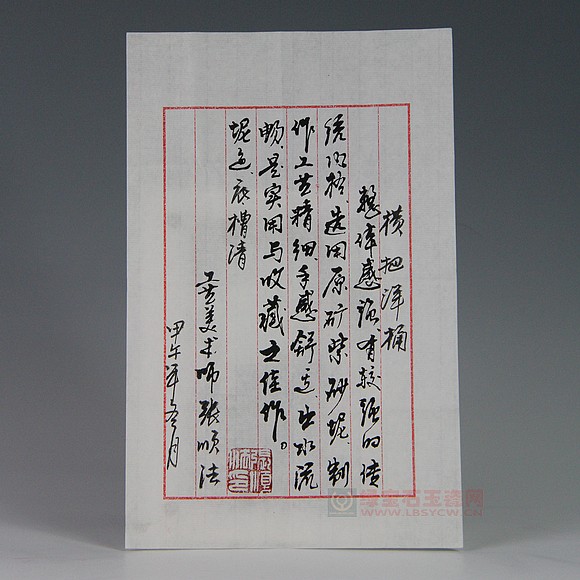 横把洋桶
整体感强有较强的传
统风格,选用原矿紫砂坭,制
作工艺精细手感舒适出水流
畅,是实用与收藏之佳作。
坭色:底槽清
工艺美术师张顺法
甲午年冬月
绿宝石玉瓷网
WWW.LBSYCW.CN